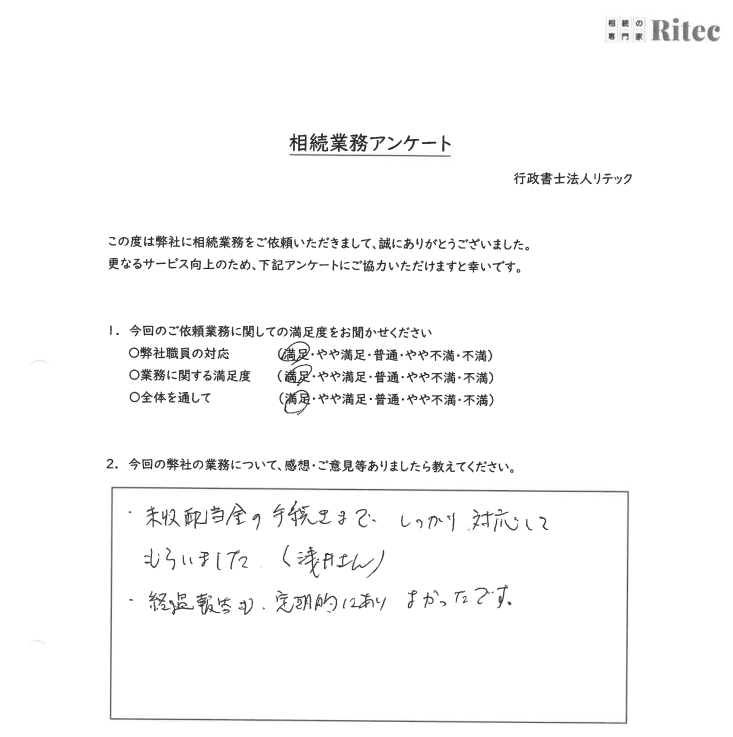 相続の
専門家
Ritec
相続業務アンケート
行政書士法人リテック
この度は弊社に相続業務をご依頼いただきまして、誠にありがとうございました。
更なるサービス向上のため、下記アンケートにご協力いただけますと幸いです。
1. 今回のご依頼業務に関しての満足度をお聞かせください
○弊社職員の対応 (満足・やや満足・普通・やや不満・不満)
○業務に関する満足度 (満足・やや満足・普通・やや不満・不満)
○全体を通して (満足・やや満足・普通・やや不満・不満)
2. 今回の弊社の業務について、感想・ご意見等ありましたら教えてください。
・未収配当金の手続きまで、しっかり対応して
もらいました。(浅井さん)
・経過報告も、定期的にあり よかったです。